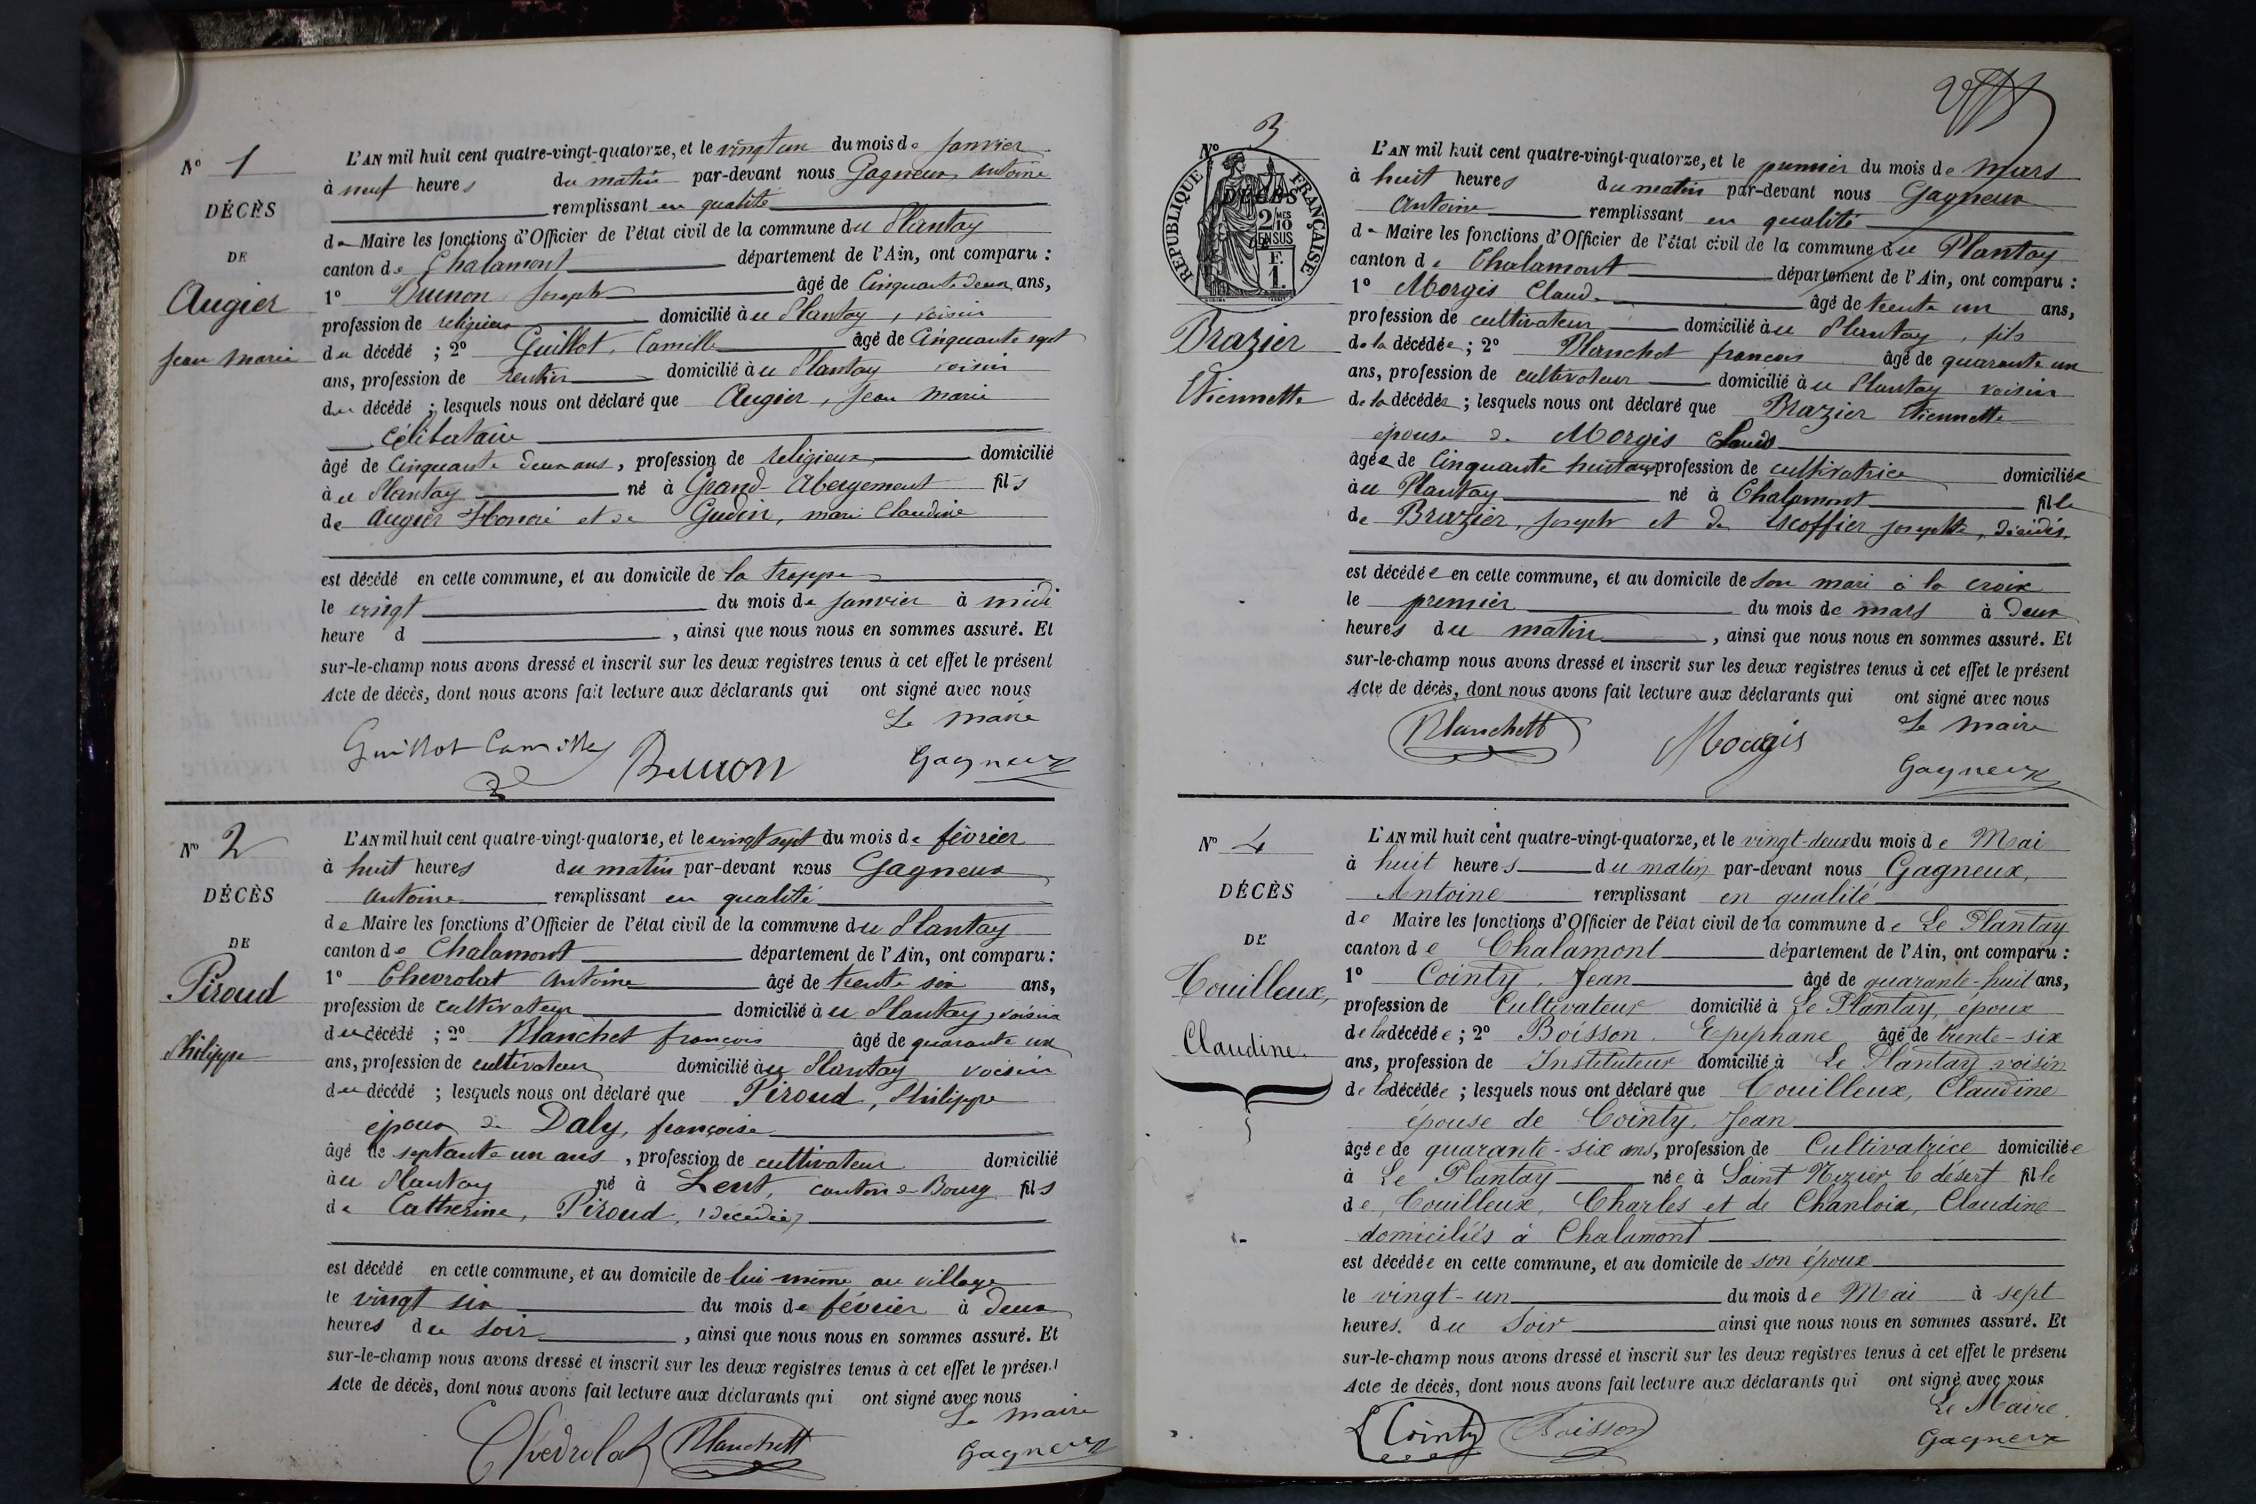 Nº 1
DÉCÈS
DE
Augier
Jean Marie
L'AN mil huit cent quatre-vingt-quatorze, et le vingt un du mois de Janvier
à neuf heures du matin par-devant nous Gagneux Antoine
remplissant en qualité
de Maire les fonctions d'Officier de l'état civil de la commune du Plantay
canton de Chalamont département de l'Ain, ont comparu :
1º Brunon Joseph âgé de Cinquante deux ans,
profession de religieux domicilié à u Plantay, voisin
du décédé ; 2º Guillot, Camille âgé de Cinquante sept
ans, profession de rentier domicilié à u Plantay voisin
du décédé ; lesquels nous ont déclaré que Augier, Jean Marie
célibataire
âgé de Cinquante deux ans, profession de religieux domicilié
à u Plantay né à Grand Abergement fils
de Augier Honoré et de Gudin, marie Claudine
est décédé en cette commune, et au domicile de la trappe
le vingt du mois de Janvier à midi
heure d , ainsi que nous nous en sommes assuré. Et
sur-le-champ nous avons dressé et inscrit sur les deux registres tenus à cet effet le présent
Acte de décès, dont nous avons fait lecture aux déclarants qui ont signé avec nous
Le maire
Guillot Camille Brunon Gagneux
Nº 2
DÉCÈS
DE
Piroud
Philippe
L'AN mil huit cent quatre-vingt-quatorze, et le vingt sept du mois de février
à huit heures du matin par-devant nous Gagneux
Antoine remplissant en qualité
de Maire les fonctions d'Officier de l'état civil de la commune du Plantay
canton de Chalamont département de l'Ain, ont comparu :
1º Chevrolat Antoine âgé de trente six ans,
profession de cultivateur domicilié à u Plantay, voisin
du décédé ; 2º Blanchet françois âgé de quarante un
ans, profession de cultivateur domicilié à u Plantay voisin
du décédé ; lesquels nous ont déclaré que Piroud, Philippe
époux de Daly, françoise
âgé de septante un ans, profession de cultivateur domicilié
à u Plantay né à Lent, canton de Bourg fils
de Catherine, Piroud, (décédée)
est décédé en cette commune, et au domicile de lui même au village
le vingt six du mois de février à deux
heures du soir , ainsi que nous nous en sommes assuré. Et
sur-le-champ nous avons dressé et inscrit sur les deux registres tenus à cet effet le présent
Acte de décès, dont nous avons fait lecture aux déclarants qui ont signé avec nous
Le maire
Chevrolat Blanchett Gagneux
Nº 3
RÉPUBLIQUE FRANÇAISE
DÉCÈS
2/10 MES
EN SUS
F.
1.
DE
Brazier
Etiennette
L'AN mil huit cent quatre-vingt-quatorze, et le premier du mois de Mars
à huit heures du matin par-devant nous Gagneux
Antoine remplissant en qualité
de Maire les fonctions d'Officier de l'état civil de la commune du Plantay
canton de Chalamont département de l'Ain, ont comparu :
1º Morgis Claude âgé de trente un ans,
profession de cultivateur domicilié à u Plantay, fils
de la décédée ; 2º Blanchet francois âgé de quarante un
ans, profession de cultivateur domicilié à u Plantay voisin
de la décédée ; lesquels nous ont déclaré que Brazier Etiennette
épouse de Morgis Claude
âgée de Cinquante huit ans, profession de cultivatrice domiciliée
à u Plantay né à Chalamont fille
de Brazier, Joseph et de Escoffier Josephte, décédés
est décédée en cette commune, et au domicile de son mari à la croix
le premier du mois de mars à deux
heures du matin , ainsi que nous nous en sommes assuré. Et
sur-le-champ nous avons dressé et inscrit sur les deux registres tenus à cet effet le présent
Acte de décès, dont nous avons fait lecture aux déclarants qui ont signé avec nous
Le maire
Blanchett Mougis Gagneux
Nº 4
DÉCÈS
DE
Couilleux,
Claudine.
L'AN mil huit cent quatre-vingt-quatorze, et le vingt-deux du mois de Mai
à huit heures du matin par-devant nous Gagneux,
Antoine remplissant en qualité
de Maire les fonctions d'Officier de l'état civil de la commune de Le Plantay
canton de Chalamont département de l'Ain, ont comparu :
1º Cointy, Jean âgé de quarante-huit ans,
profession de Cultivateur domicilié à Le Plantay, époux
de la décédée ; 2º Boisson Epiphane âgé de trente-six
ans, profession de Instituteur domicilié à Le Plantay voisin
de la décédée ; lesquels nous ont déclaré que Couilleux, Claudine
épouse de Cointy, Jean
âgée de quarante-six ans, profession de Cultivatrice domiciliée
à Le Plantay née à Saint Nizier le désert fille
de Couilleux, Charles et de Chanloix, Claudine
domiciliés à Chalamont
est décédée en cette commune, et au domicile de son époux
le vingt-un du mois de Mai à sept
heures du Soir ainsi que nous nous en sommes assuré. Et
sur-le-champ nous avons dressé et inscrit sur les deux registres tenus à cet effet le présent
Acte de décès, dont nous avons fait lecture aux déclarants qui ont signé avec nous
Le Maire
Cointy Boisson Gagneux